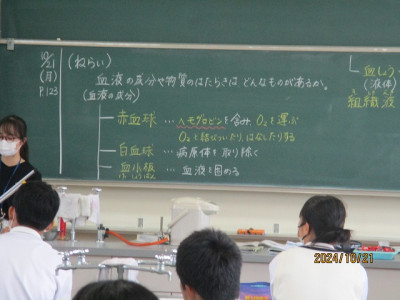 10/21
(月)
P.123
(ねらい)
血液の成分や物質のはたらきは、どんなものがあるか。
(血液の成分)
赤血球 … ヘモグロビンを含み O₂を運ぶ
O₂と結びついたり、はなしたりする
白血球 … 病原体を取り除く
血小板 … 血液を固める
けっしょうばん
血しょう
(液体)
組織液
2024/10/21